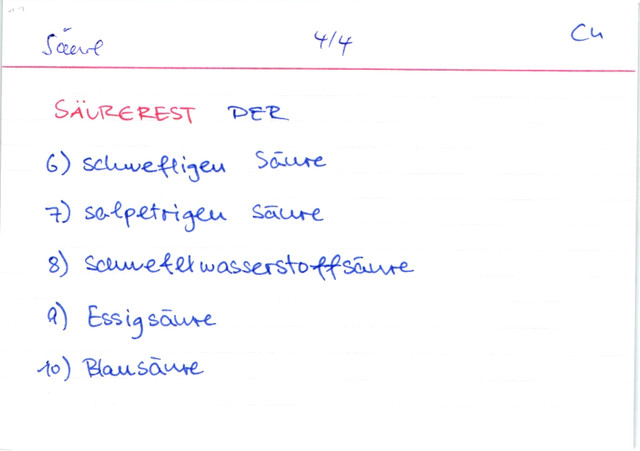 Säure 4/4 Ch
SÄUREREST DER
6) schwefligen Säure
7) salpetrigen Säure
8) Schwefelwasserstoffsäure
9) Essigsäure
10) Blausäure